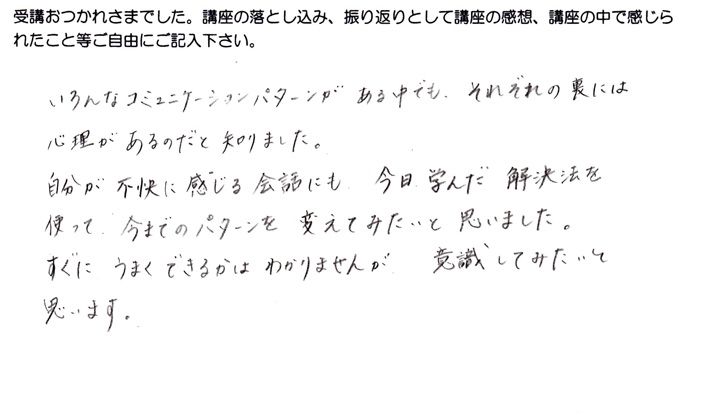 受講おつかれさまでした。講座の落とし込み、振り返りとして講座の感想、講座の中で感じら
れたこと等ご自由にご記入下さい。
いろんなコミュニケーションパターンがある中でも、それぞれの裏には
心理があるのだと知りました。
自分が不快に感じる会話にも、今日学んだ解決法を
使って、今までのパターンを変えてみたいと思いました。
すぐにうまくできるかはわかりませんが、意識してみたいと
思います。